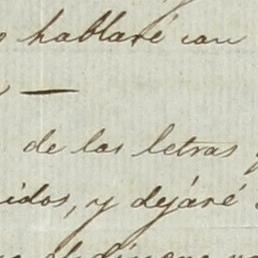 hablaré con
—
de las letras
idos, y dejaré